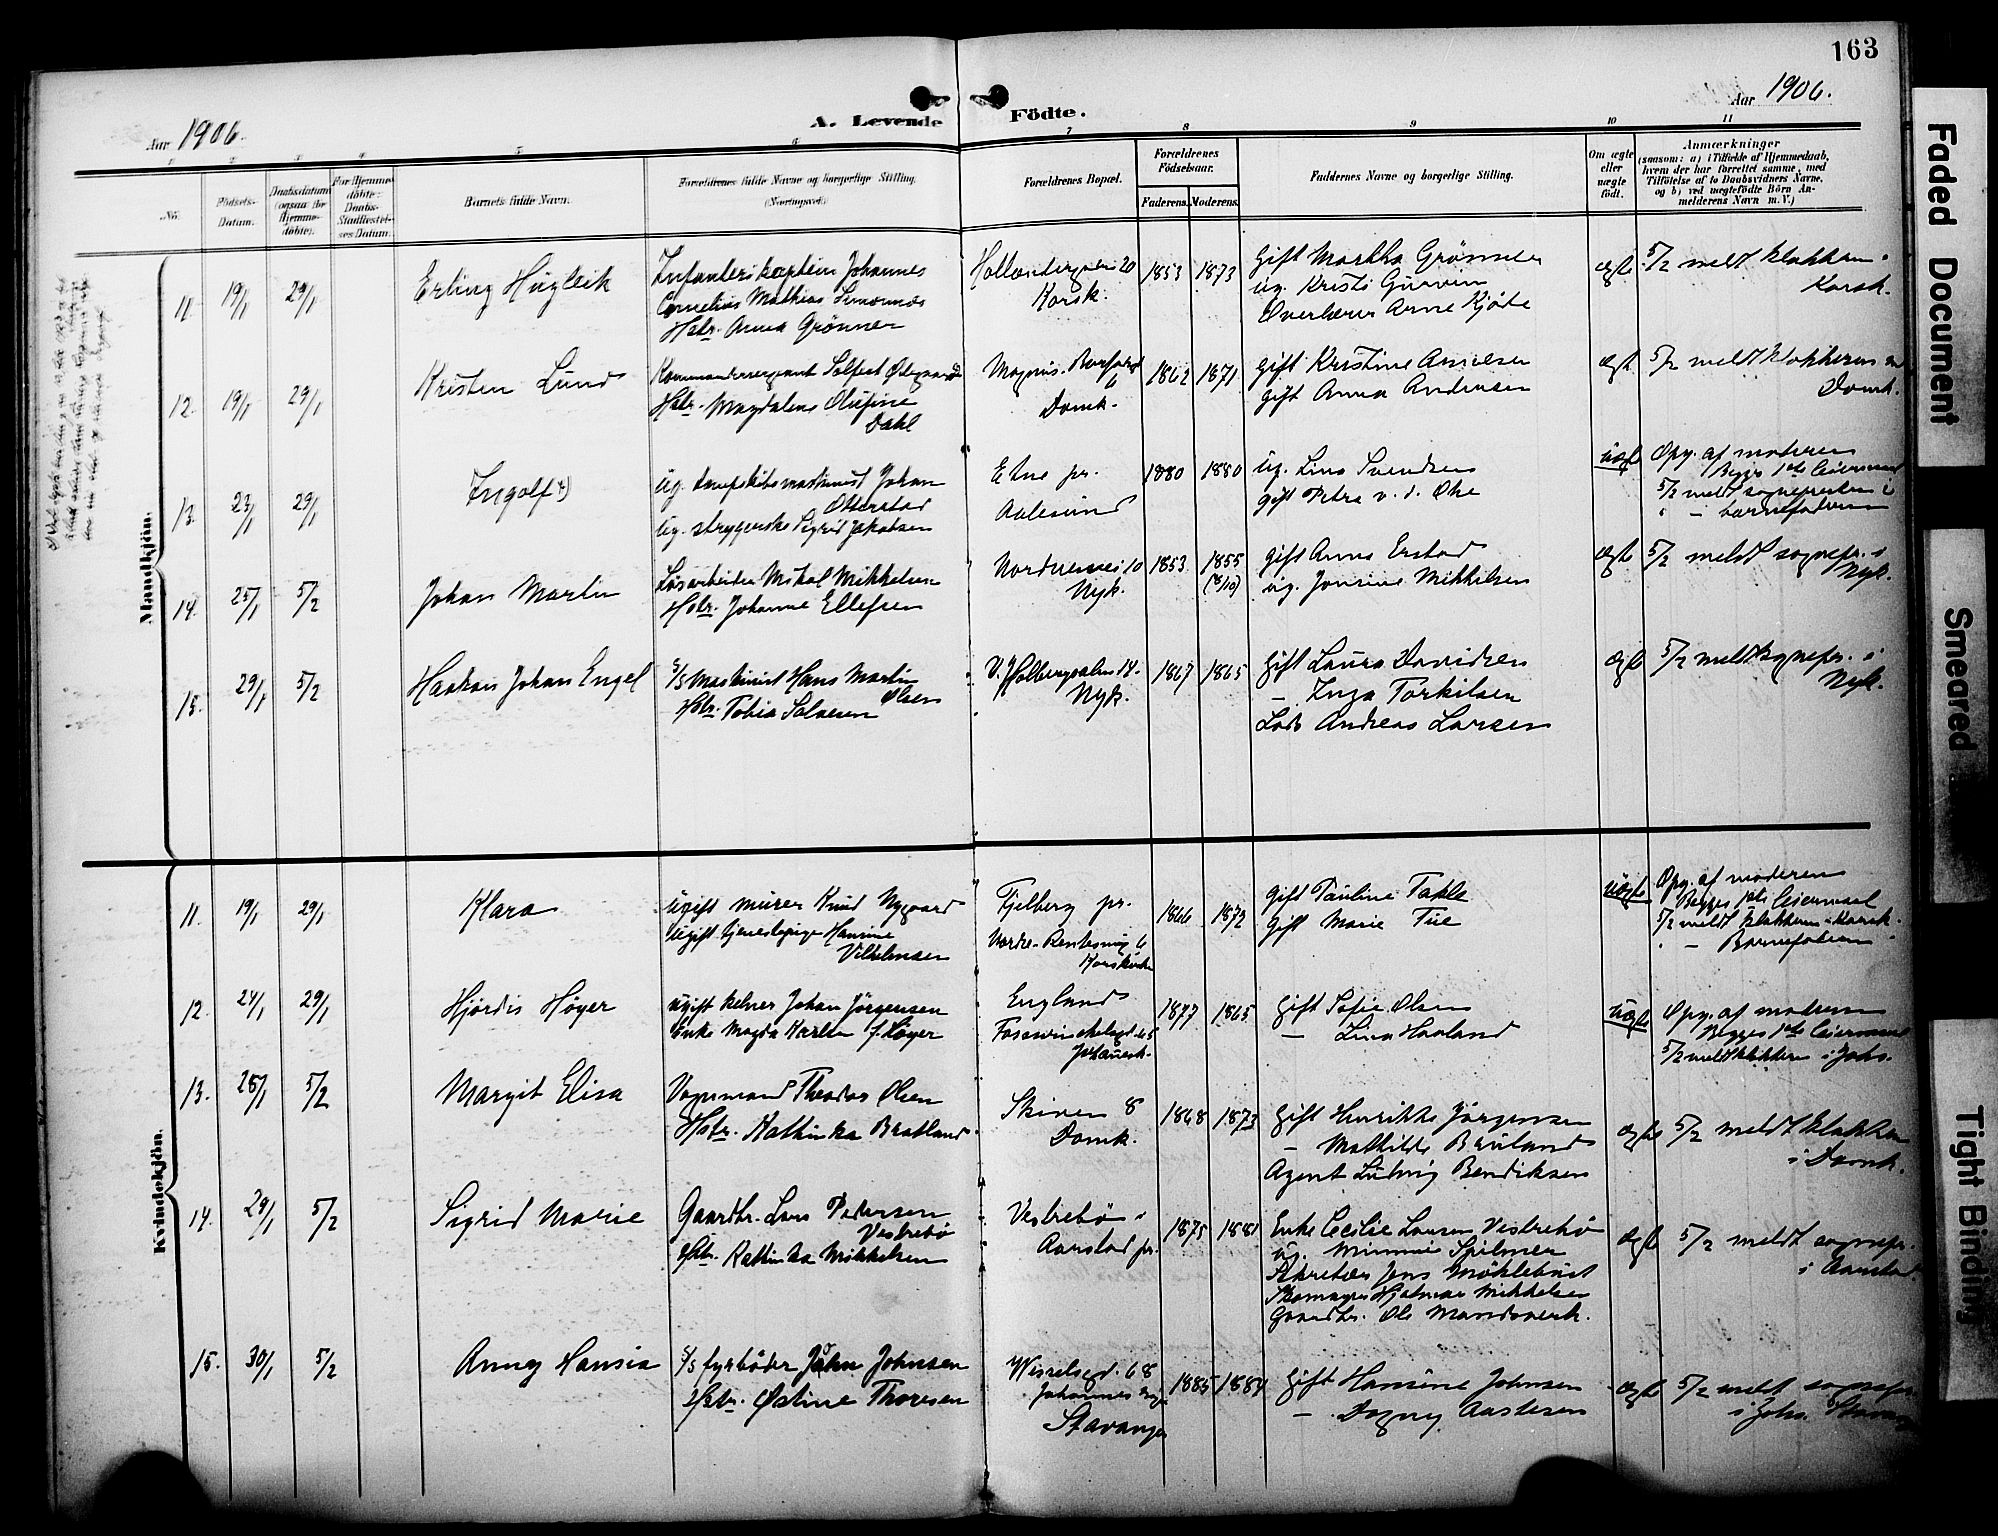 163
Aar 1906.
A. Levende Födte.
Aar 1906.
1 2 3 4 5 6 7 8 9 10 11
No.
Födsels-Datum.
Daabsdatum (ogsaa for Hjemme-döbte).
For Hjemme-döbte: Daabs-Stadfæstel-ses-Datum.
Barnets fulde Navn.
Forældrenes fulde Navne og borgerlige Stilling. (Næringsvei)
Forældrenes Bopæl.
Forældrenes Födselsaar.
Faderens. Moderens.
Faddernes Navne og borgerlige Stilling.
Om ægte eller uægte födt.
Anmærkninger
(saasom: a) i Tilfælde af Hjemmedaab, hvem der har forrettet samme, med Tilföielse af to Daabsvidners Navne, og b) ved uegtefödte Börn Anmelderens Navn m. V.)
Mandkjön.
11. 19/1 29/1 Erling Hugleik
Infanterikaptein Johannes
Cornelius Mathias
Hstr. Anna Grønner
20
Korsk.
1853 1873
Gift Martha Grønner
ug. Kristi
Overlærer Arne Kjöde
ægte
5/2 meldt klokkeren i
Korsk.
12. 19/1 29/1 Kristen Lund
Kommandersergeant
Hstr. Magdalene Olufine
Dahl
6
Domk.
1862 1871
gift Kristine
gift Anna Andersen
ægte
5/2 meldt klokkeren i
Domk.
13. 23/1 29/1 Ingolf
ug. Johan
Otterstad
ug. strygerske Sigrid Jakobsen
Etne pr.
Aalesund
1880 1880
ug. Lina Svendsen
gift Petra v. d. Ohe
uægte
Opg. af moderen
Begges 1ste Leiermaal
5/2 meldt sognepresten i
" — barnefaderen
14. 25/1 5/2 Johan Martin
Løsarbeider Mikal Mikkelsen
Hstr. Johanne Ellefsen
10
Nyk.
1853 1855
gift Anna Erstad
ug. Jonine Mikkelsen
ægte
5/2 meldt sognepr. i
Nyk.
15. 29/1 5/2 Haakon Johan Engel
S/S Maskinist Hans Martin
Olsen
Hstr. Tobia Salvesen
V. Holbergsalm. 14.
Nyk.
1867 1865
gift Laura Davidsen
— Inga Torkilsen
Lods Andreas Larsen
ægte
5/2 meldt sognepr. i
Nyk.
Kvindekjön.
11. 19/1 29/1 Klara
ugift murer Knud Nygaard
ugift tjenestepige Hansine
Vilhelmsen
Fjelberg pr.
6
Korskirken
1866 1872
gift Pauline Takle
gift Marie Tue
uægte
Opg. af moderen
Begges 1ste Leiermaal
5/2 meldt klokkeren i Korsk.
" — Barnefaderen
12. 24/1 29/1 Hjørdis Høyer
ugift kelner Johan Jörgensen
Enke Magda Karlen f. Høyer
England
Johannesk.
1877 1865
Gift Sofie Olsen
— Lina Haaland
uægte
Opg. af moderen
Begges 1ste Leiermaal
5/2 meldt klokkeren i Johs.
13. 25/1 5/2 Margit Elisa
Vognmand Theodor Olsen
Hstr. Kathinka Bratland
Skiven 8
Domk.
1868 1873
Gift Henrikke Jørgensen
— Mathilde
Agent Ludvig Bendiksen
ægte
5/2 meldt klokkeren
i Domk.
14. 29/1 5/2 Sigrid Marie
Gaardbr. Lars Pedersen
Vestrebø
Hstr. Kathinka Mikkelsen
Vestrebø i
Aarstad pr.
1875 1881
Enke Cecilie Larsen Vestrebø
ug. Minnie Spilmer
Sekretær Jens Møklebust
Skomager Hjalmar Mikkelsen
Gaardbr. Ole
ægte
5/2 meldt sognepr.
i Aarstad
15. 30/1 5/2 Anny Hansia
S/S fyrbøder John Johnsen
Hstr. Østine Thoresen
Wesselsgd. 68
Johannes mgh.
Stavanger
1885 1884
Gift Hansine Johnsen
— Dagny Aastesen
ægte
5/2 meldt sognepr.
i Johs. Stavanger
Faded Document
Smeared
Tight Binding